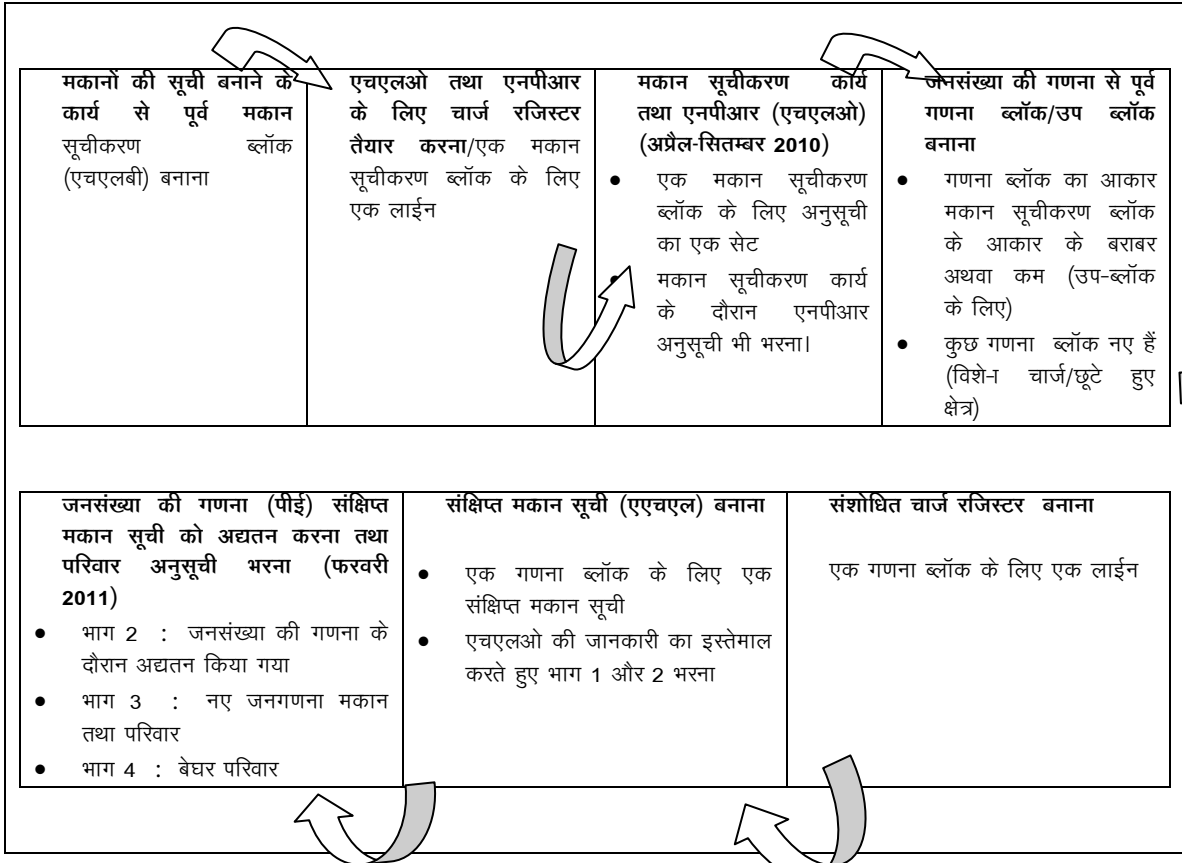 मकानों की सूची बनाने के
कार्य से पूर्व मकान
सूचीकरण ब्लॉक
(एचएलबी) बनाना
एचएलओ तथा एनपीआर
के लिए चार्ज रजिस्टर
तैयार करना/एक मकान
सूचीकरण ब्लॉक के लिए
एक लाईन
मकान सूचीकरण कार्य
तथा एनपीआर (एचएलओ)
(अप्रैल-सितम्बर 2010)
• एक मकान सूचीकरण
ब्लॉक के लिए अनुसूची
का एक सेट
• मकान सूचीकरण कार्य
के दौरान एनपीआर
अनुसूची भी भरना।
जनसंख्या की गणना से पूर्व
गणना ब्लॉक/उप ब्लॉक
बनाना
• गणना ब्लॉक का आकार
मकान सूचीकरण ब्लॉक
के आकार के बराबर
अथवा कम (उप-ब्लॉक
के लिए)
• कुछ गणना ब्लॉक नए हैं
(विशे-ा चार्ज/छूटे हुए
क्षेत्र)
जनसंख्या की गणना (पीई) संक्षिप्त
मकान सूची को अद्यतन करना तथा
परिवार अनुसूची भरना (फरवरी
2011)
• भाग 2 : जनसंख्या की गणना के
दौरान अद्यतन किया गया
• भाग 3 : नए जनगणना मकान
तथा परिवार
• भाग 4 : बेघर परिवार
संक्षिप्त मकान सूची (एएचएल) बनाना
• एक गणना ब्लॉक के लिए एक
संक्षिप्त मकान सूची
• एचएलओ की जानकारी का इस्तेमाल
करते हुए भाग 1 और 2 भरना
संशोधित चार्ज रजिस्टर बनाना
एक गणना ब्लॉक के लिए एक लाईन